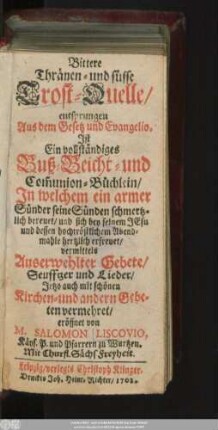 Bittere
Thränen- und süsse
Trost-Quelle/
entsprungen
Aus dem Gesetz und Evangelio,
Ist
Ein vollständiges
Buß-Beicht- und
Com̃union-Büchlein/
In welchem ein armer
Sünder seine Sünden schmertz-
lich bereuet/ und sich bey seinem JEsu
und dessen hochtröstlichem Abend-
mahle hertzlich erfreuet/
vermittels
Auserwehlter Gebete/
Seufftzer und Lieder/
Jetzo auch mit schönen
Kirchen- und andern Gebe-
ten vermehret/
eröffnet von
M. SALOMON LISCOVIO,
Käys. P. und Pfarrern zu Wurtzen.
Mit Churfl. Sächs. Freyheit.
Leipzig/ verlegts Christoph Klinger.
Druckts Joh. Heinr. Richter/ 1702.